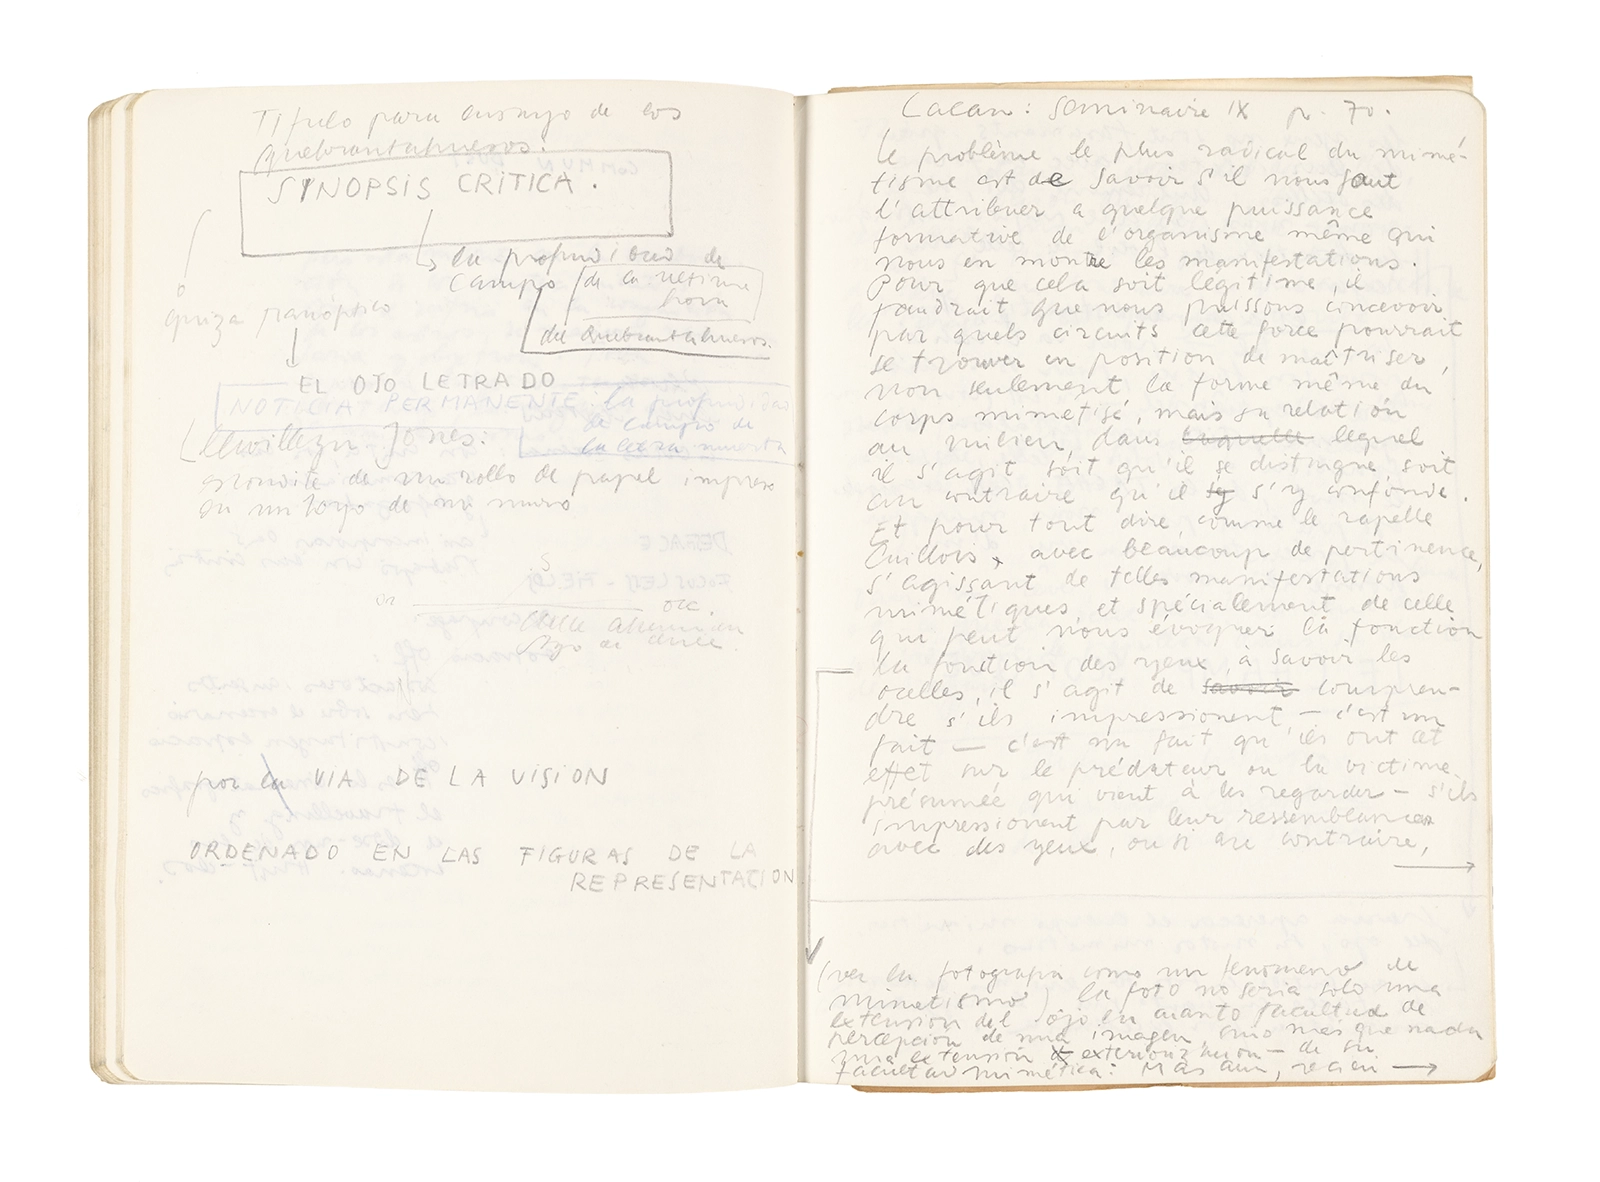 Título para ensayo de los
Quebrantahuesos.
SINOPSIS CRITICA.
la profundidad de
campo (de la ultima
hora
del Quebrantahuesos.
quiza panóptico
EL OJO LETRADO
NOTICIA PERMANENTE: la profundidad
de campo de
la letra muerta
Llewillezn Jones:
esconsite de un rollo de papel impreso
en un torzo de un muro
por la VIA DE LA VISION
ORDENADO EN LAS FIGURAS DE LA
REPRESENTACION
Lacan: Seminaire IX p. 70.
Le problème le plus radical du mimé-
tisme est de savoir s'il nous faut
l'attribuer a quelque puissance
formative de l'organisme même qui
nous en montre les manifestations.
Pour que cela soit légitime, il
faudrait que nous puissons concevoir
par quels circuits cette force pourrait
se trouver en position de maîtriser,
non seulement la forme même du
corps mimétisé, mais sa relation
au milieu, dans laquelle lequel
il s'agit soit qu'il se distingue, soit
au contraire qu'il s'y confonde.
Et pour tout dire comme le rapelle
Caillois, avec beaucoup de pertinence,
s'agissant de telles manifestations
mimétiques, et spécialement de celle
qui peut nous évoquer la fonction
la fonction des yeux, à savoir les
ocelles, il s'agit de savoir compren-
dre s'ils impressionent – c'est un
fait – c'est un fait qu'ils ont cet
effet sur le prédateur ou la victime
présumée qui vient à les regarder – s'ils
impressionent par leur ressemblance
avec des yeux, ou si au contraire,
(ver la fotografia como un fenomeno de
mimetismo) la foto no seria solo una
extension del ojo en cuanto facultad de
percepcion de una imagen, sino mas que nada
una extensión exteriorización – de su
facultad mimética: Mas aun, recien